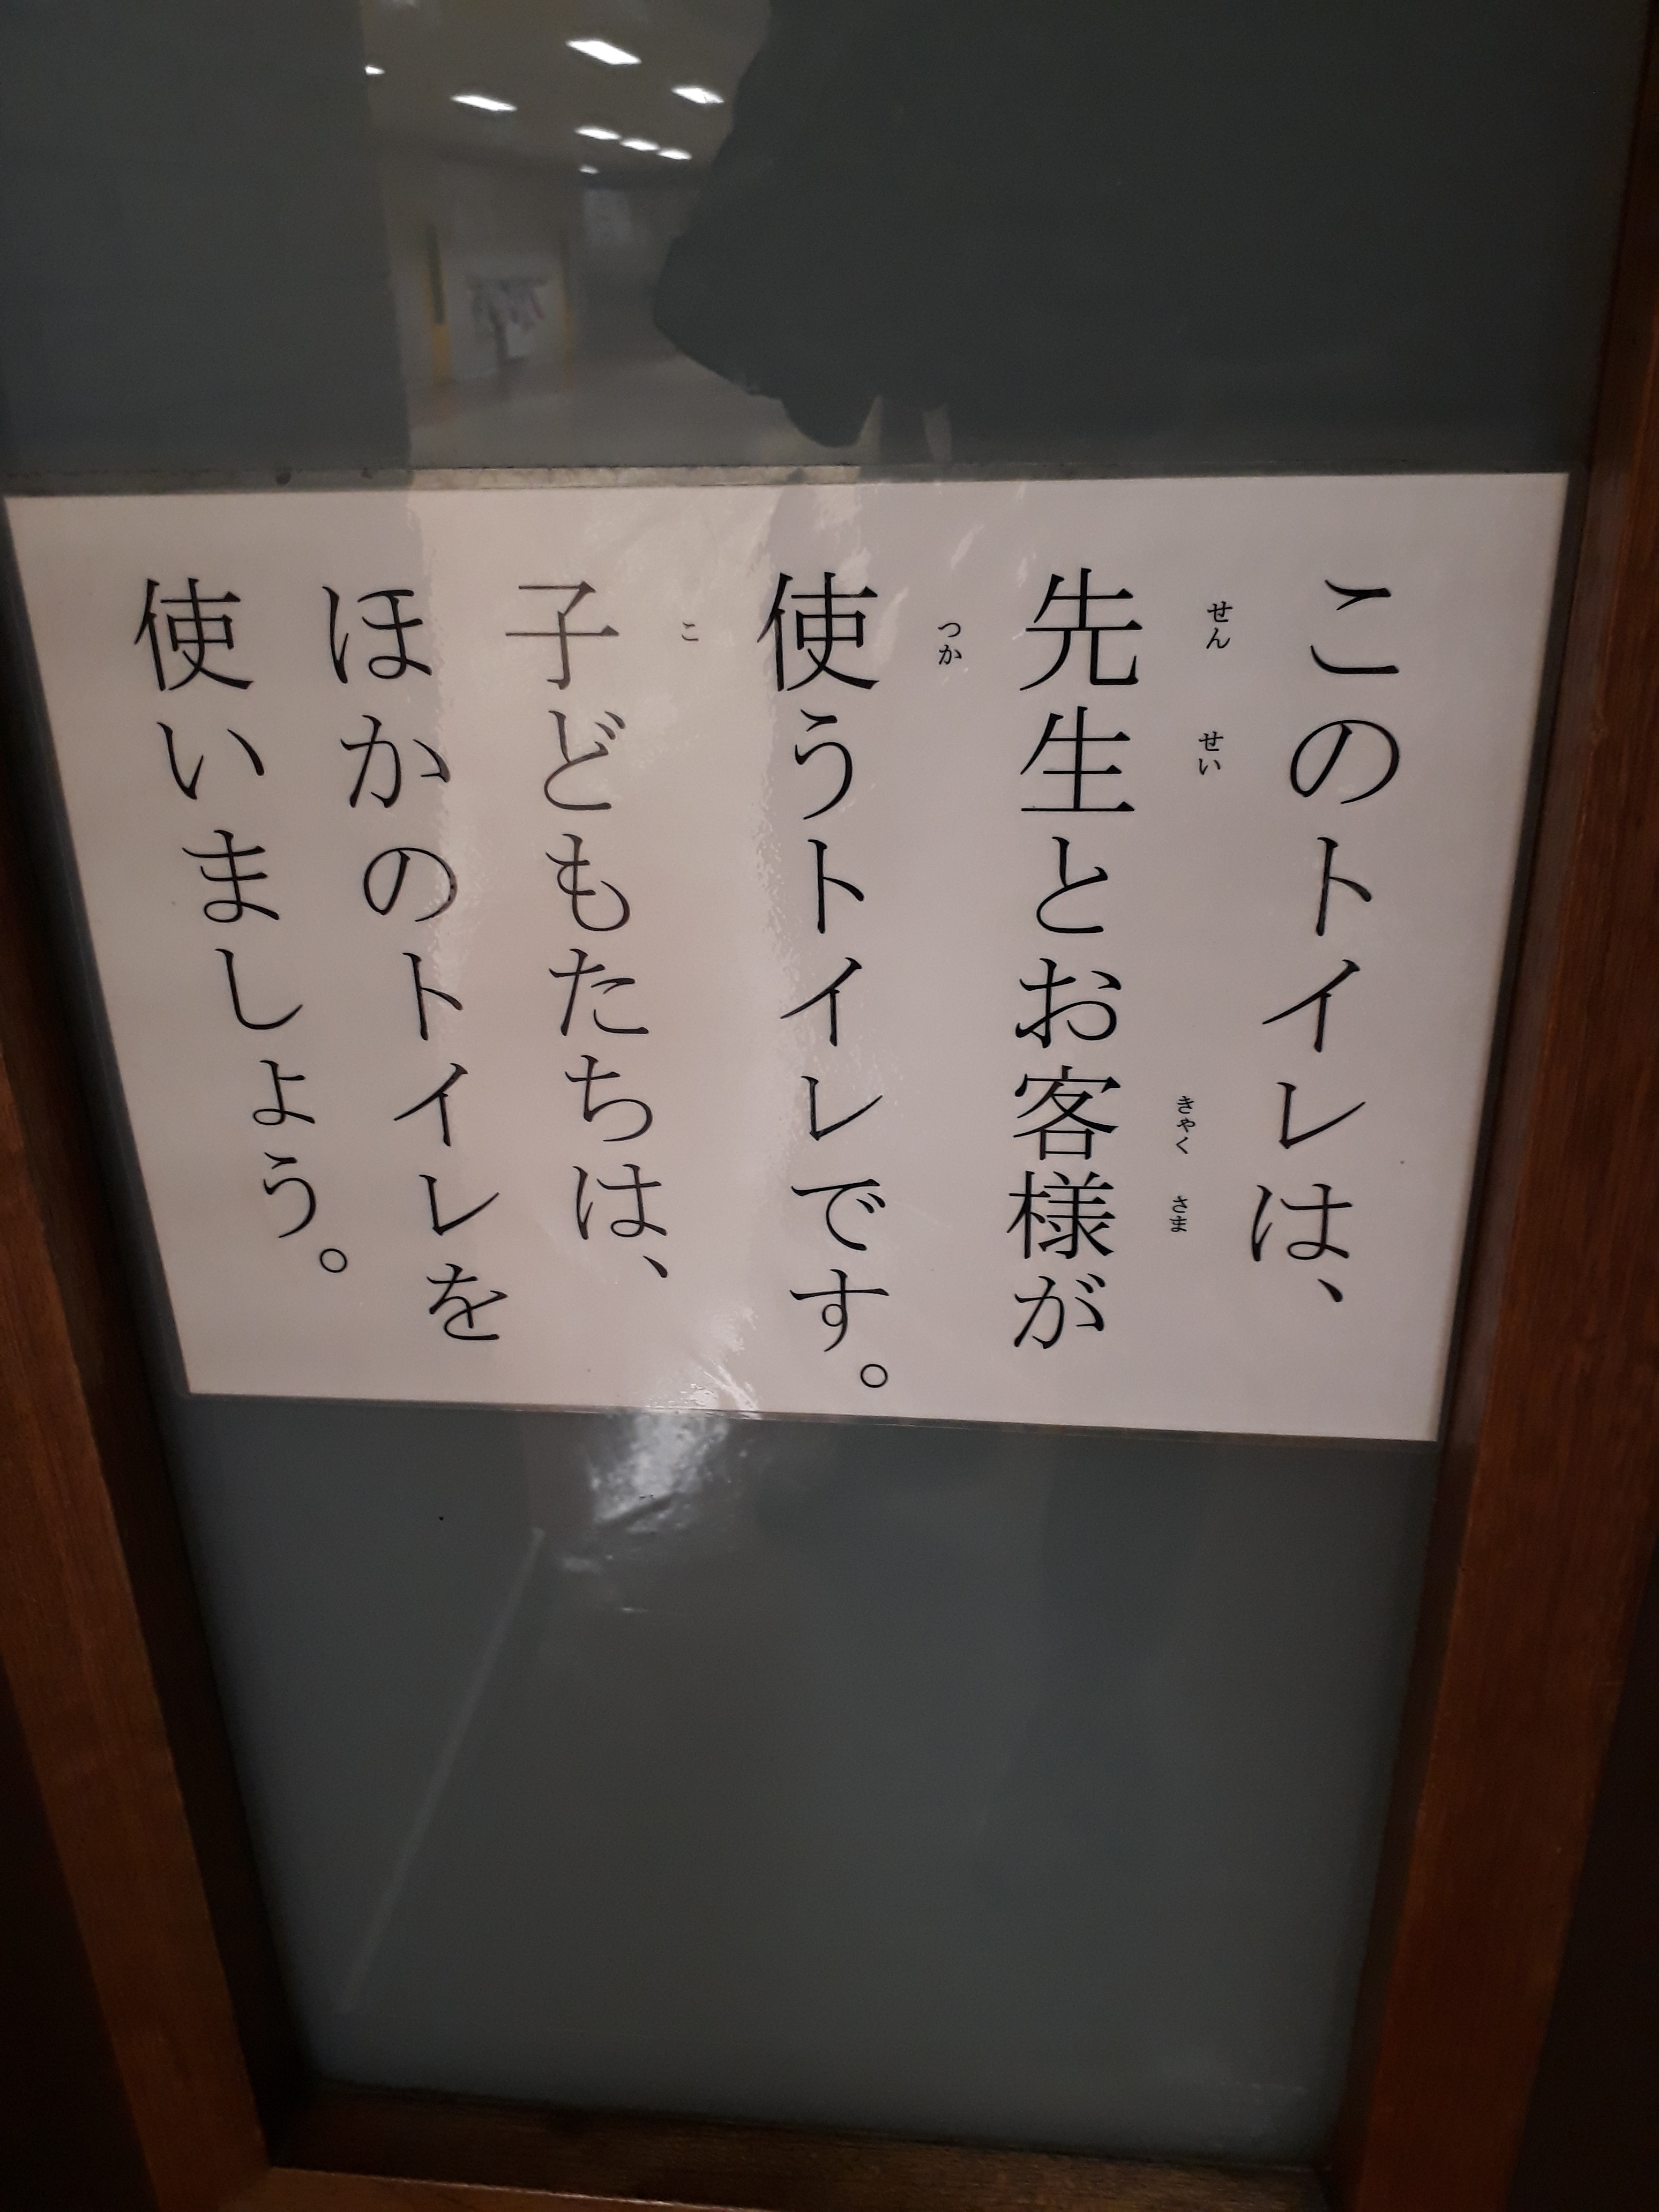 このトイレは、
せん せい きゃく さま
先生とお客様が
つか
使うトイレです。
こ
子どもたちは、
ほかのトイレを
使いましょう。